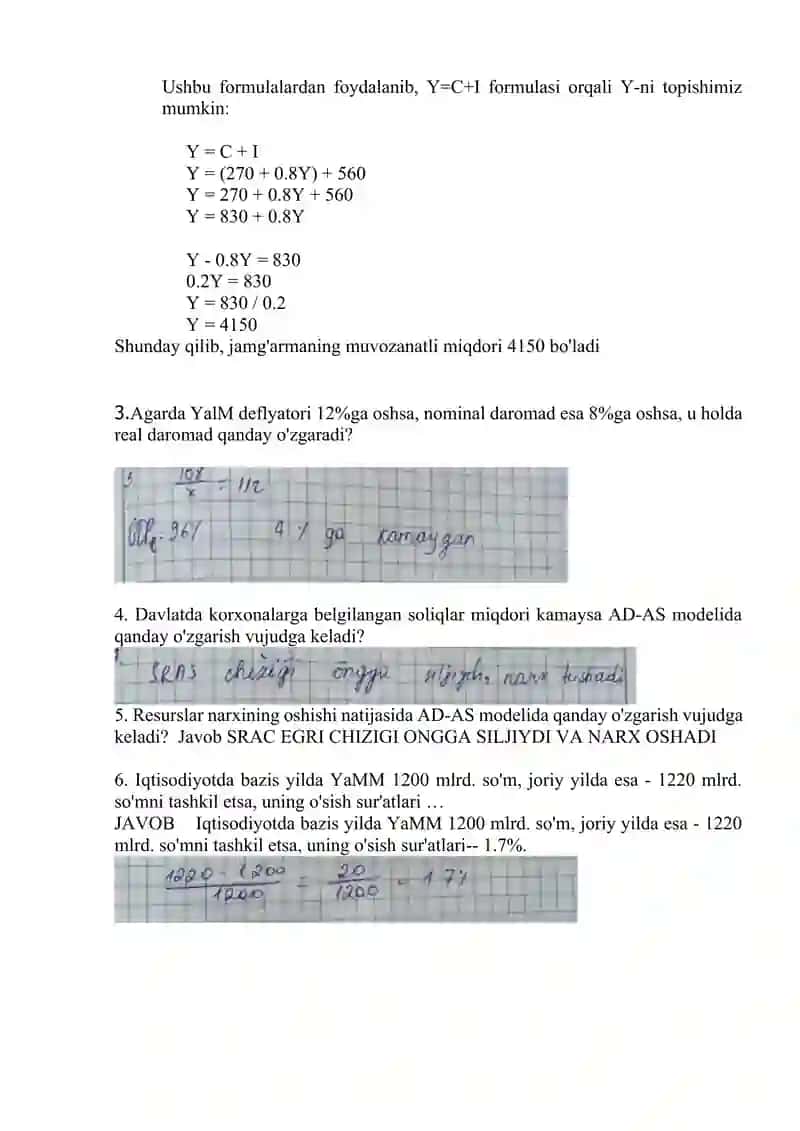 Ushbu formulalardan foydalanib, Y=C+I formulasi orqali Y-ni topishimiz
mumkin:
Y = C + I
Y = (270 + 0.8Y) + 560
Y = 270 + 0.8Y + 560
Y = 830 + 0.8Y
Y - 0.8Y = 830
0.2Y = 830
Y = 830 / 0.2
Y = 4150
Shunday qilib, jamg'armaning muvozanatli miqdori 4150 bo'ladi
3.Agarda YalM deflyatori 12%ga oshsa, nominal daromad esa 8%ga oshsa, u holda
real daromad qanday o'zgaradi?
3. 108/x = 112
96% 4 % ga kamaygan
4. Davlatda korxonalarga belgilangan soliqlar miqdori kamaysa AD-AS modelida
qanday o'zgarish vujudga keladi?
SRAS chizig'i ongga siljiydi, narx tushadi
5. Resurslar narxining oshishi natijasida AD-AS modelida qanday o'zgarish vujudga
keladi? Javob SRAC EGRI CHIZIGI ONGGA SILJIYDI VA NARX OSHADI
6. Iqtisodiyotda bazis yilda YaMM 1200 mlrd. so'm, joriy yilda esa - 1220 mlrd.
so'mni tashkil etsa, uning o'sish sur'atlari …
JAVOB Iqtisodiyotda bazis yilda YaMM 1200 mlrd. so'm, joriy yilda esa - 1220
mlrd. so'mni tashkil etsa, uning o'sish sur'atlari-- 1.7%.
1220 - 1200 / 1200 = 20 / 1200 = 1.7%